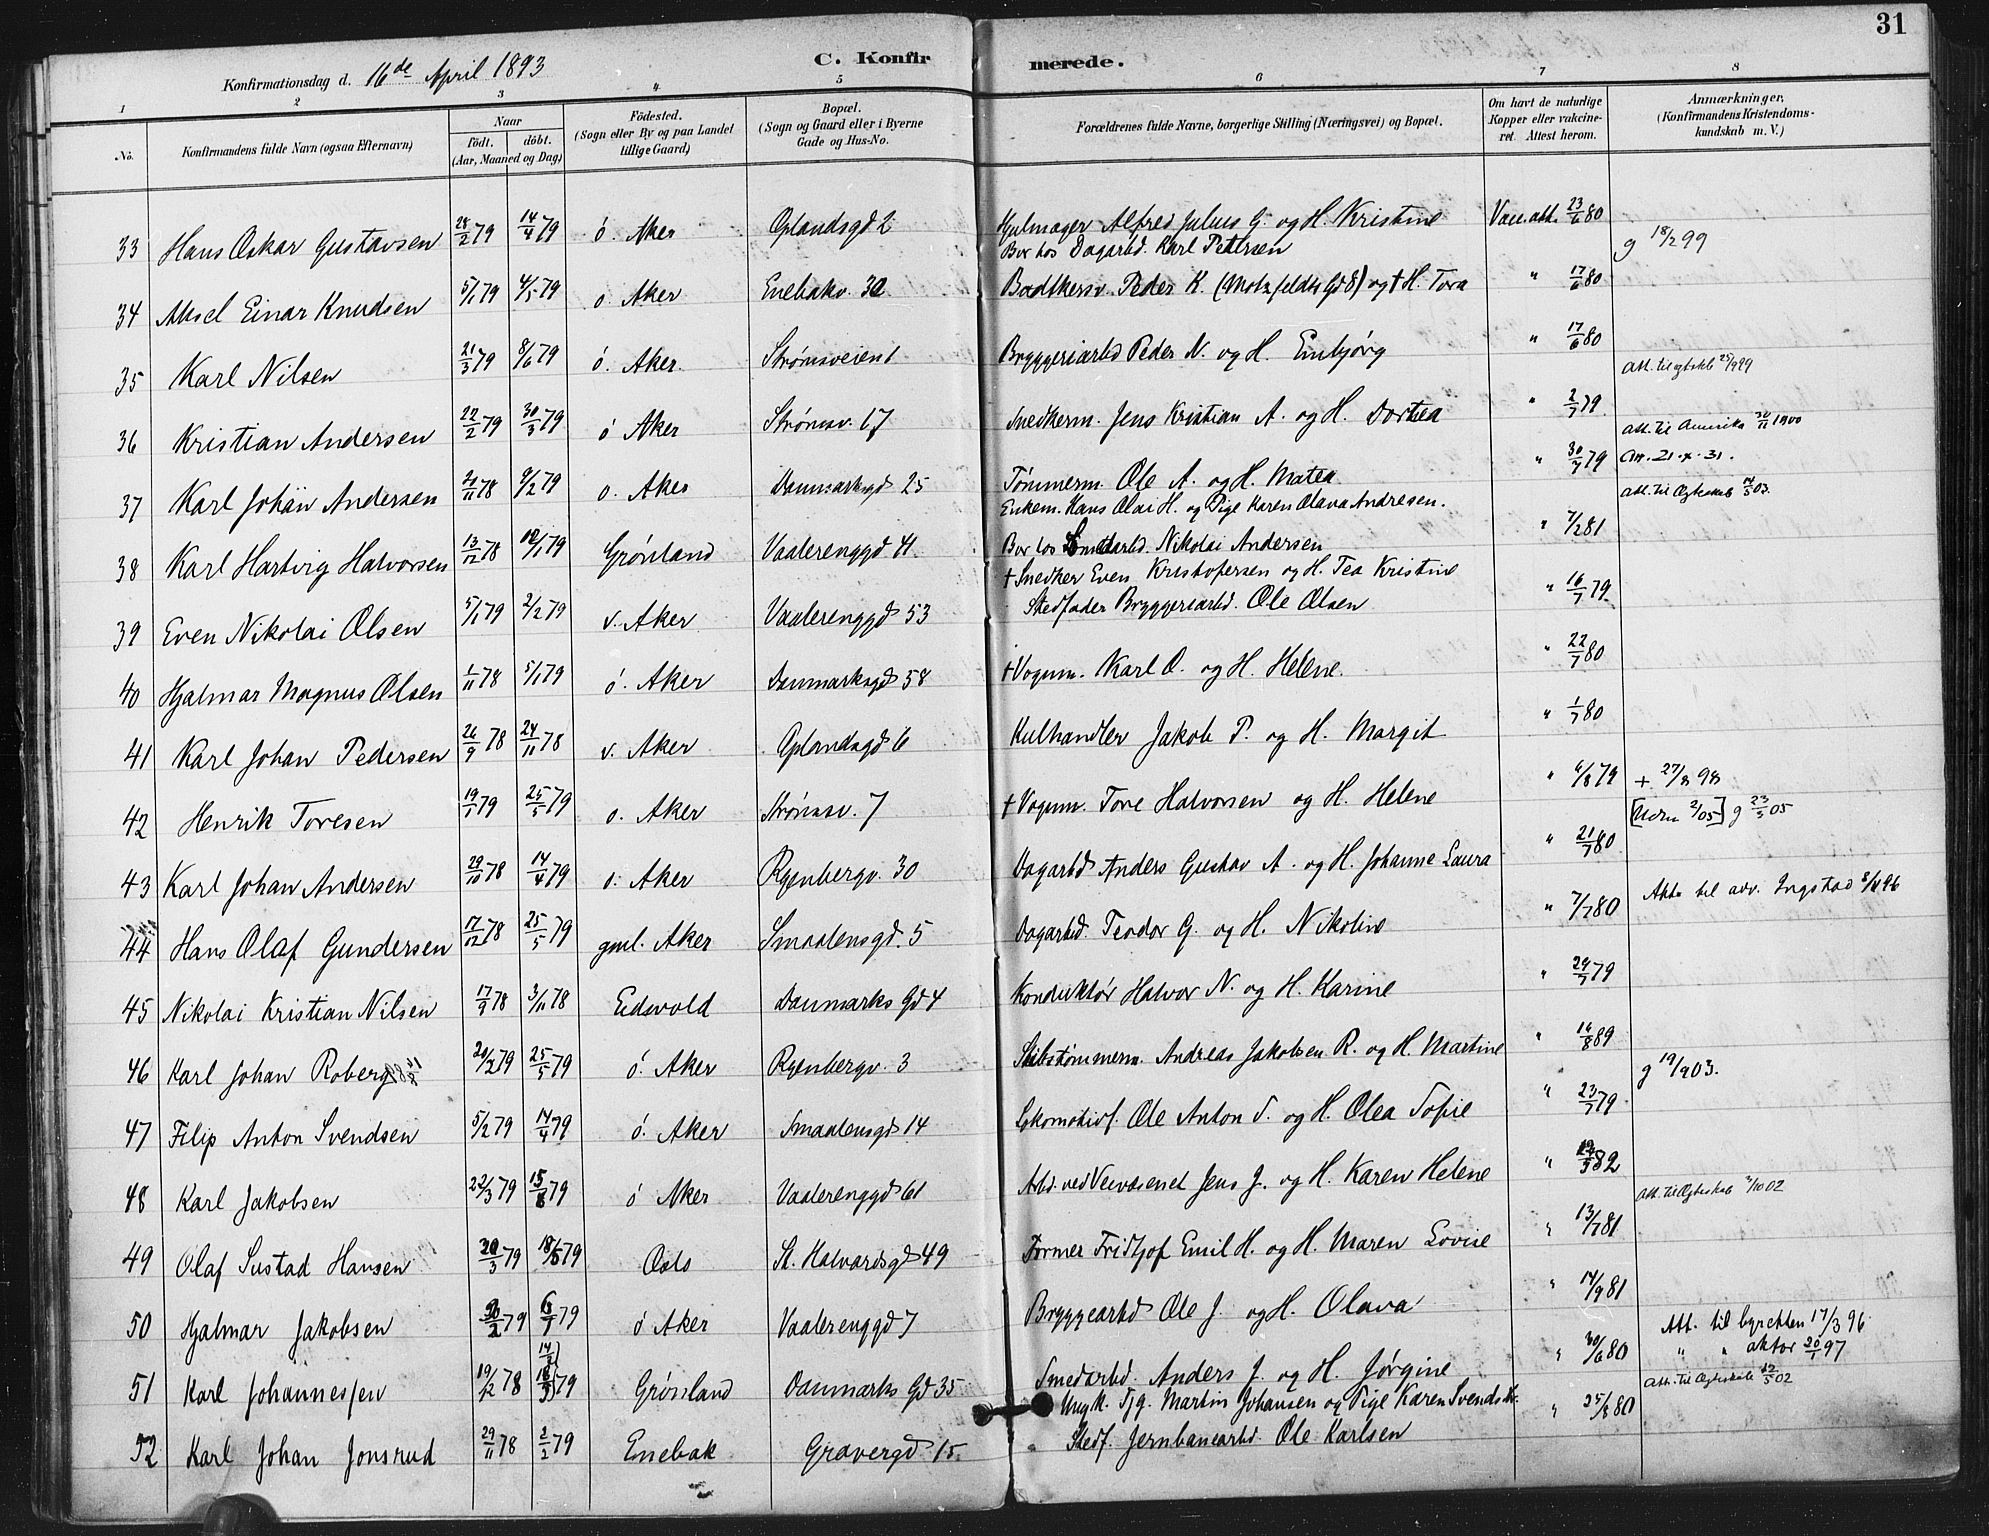 31
Konfirmationsdag d. 16de April 1893
C. Konfirmerede.
1 2 3 4 5 6 7 8
No. Konfirmandens fulde Navn (ogsaa Efternavn) Naar födt. döbt. (Aar, Maaned og Dag) Födested. (Sogn eller By og paa Landet tillige Gaard) Bopæl. (Sogn og Gaard eller i Byerne Gade og Hus-No. Forældrenes fulde Navne, borgerlige Stilling (Næringsvei) og Bopæl. Om havt de naturlige Kopper eller vakcineret. Attest herom. Anmærkninger. (Konfirmandens Kristendomskundskab m. V.)
33 Hans Oskar Gustavsen 28/2 79 14/4 79 ó. Aker Oplandsgd 2 Hjulmager Alfred Julius G. og H. Kristine Vacc. att. 23/6 80
Bor hos Dagarbd. Karl Petersen g 18/2 99
34 Aksel Einar Knudsen 5/1 79 4/5 79 o. Aker Enebakv. 30 Bødkersv. Peder K. (Motzfeldts Gd 8) og † H. Tora " 17/6 80
35 Karl Nilsen 21/3 79 8/6 79 ó. Aker. Strømsveien 1 Bryggeriarbd Peder N. og H. Embjørg " 17/6 80 att. til ægtskb 25/9 99
36 Kristian Andersen 22/2 79 30/3 79 ó Aker Strømsv. 67 Snedkerm. Jens Kristian A. og H. Dortea " 2/7 79 att. til Amerika 30/11 1900
37 Karl Johan Andersen 21/11 78 9/2 79 o. Aker Danmarksgd 25 Tømmerm. Ole A. og H. Matea " 30/7 79 Att. 21-x-31.
att. til Ægteskab 14/5 03.
38 Karl Hartvig Halvorsen 13/12 78 12/1 79 Grønland Vaalerenggd 41. Enkem. Hans Olai H. og Pige Karen Olava Andresen. " 7/2 81
Bor hos Smedarbd. Nikolai Andersen
39 Even Nikolai Olsen 5/1 79 2/2 79 v. Aker Vaalerenggd 53 † Snedker Even Kristofersen og H. Tea Kristine " 16/7 79
Stedfader Bryggeriarbd. Ole Olsen
40 Hjalmar Magnus Olsen 1/11 78 5/1 79 ó. Aker Danmarksgd 58 † Vognm. Karl O. og H. Helene. " 22/7 80
41 Karl Johan Pedersen 26/9 78 24/11 78 v. Aker Oplandsgd 6 Kulhandler Jakob P. og H. Margit " 1/7 80
42 Henrik Toresen 19/1 79 25/5 79 o. Aker Strømsv. 7 † Vognm. Tore Halvorsen og H. Helene " 6/8 79 + 27/8 98
43 Karl Johan Andersen 29/10 78 14/4 79 o. Aker Ryenbergv. 30 Dagarbd Anders Gustav A. og H. Johanne Laura " 21/7 80 g 23/3 05
44 Hans Olaf Gundersen 17/12 78 25/5 79 gml. Aker Smaalensgd. 5 Dagarbd. Teodor G. og H. Nikoline " 7/7 80 Akt. til adv. Ingstad 8/4 96
45 Nikolai Kristian Nilsen 17/9 78 3/11 78 Eidsvold Danmarks Gd 4 Konduktør Halvor N. og H. Karine " 29/7 79
46 Karl Johan Roberg 20/2 79 25/5 79 ó. Aker Ryenbergv. 3 Skibstømmerm. Andreas Jakobsen R. og H. Martine " 16/8 89
47 Filip Anton Svendsen 5/2 79 14/4 79 ó. Aker Smaalensgd 14 Lokomotivf. Ole Anton S. og H. Olea Sofie " 23/7 79 g 19/9 03.
48 Karl Jakobsen 22/3 79 15/6 79 ó Aker Vaalerenggd 61 Arbd. ved Veivæsenet Jens J. og H. Karen Helene " 82
49 Olaf Sustad Hansen 20/3 79 18/5 79 Oslo St. Halvardsgd 49 Former Fridtjof Emil H. og H. Maren Lovise " 13/7 81 att. til Ægteskab 02
50 Hjalmar Jakobsen 2 79 6/7 79 ó Aker Vaalerenggd 7 Bryggearbd Ole J. og H. Olava " 14/9 81
51 Karl Johannessen 19/12 78 14/3 18/3 79 Grønland Danmarks Gd 35 Smedarbd. Anders J. og H. Jørgine " 30/6 80 Att. til byretten 17/3 96
" " aktor 20/1 97
52 Karl Johan Jonsrud 29/11 78 2/2 79 Enebak Gravergd 15. Ungk. Tjg. Martin Johansen og Pige Karen Svendsdtr. " 25/8 80 att. til Ægteskab 12/5 02
" Stedf. Jernbanearbd. Ole Karlsen